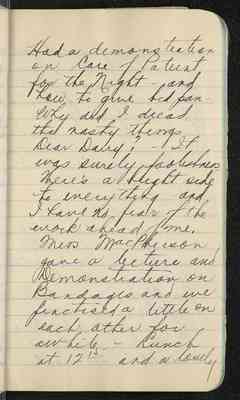 Had a demonstration
on Care of Patient
for the Night - and
how to give bed pan -
Why did I dread
the nasty things
Dear Dairy! - It
was surely foolishness
There's a bright side
to everything and
I have no fear of the
work ahead of me.
Miss MacPherson
gave a lecture and
Demonstration on
Bandages and we
practised a little on
each other for
awhile - Lunch
at 12 15 and a lovely